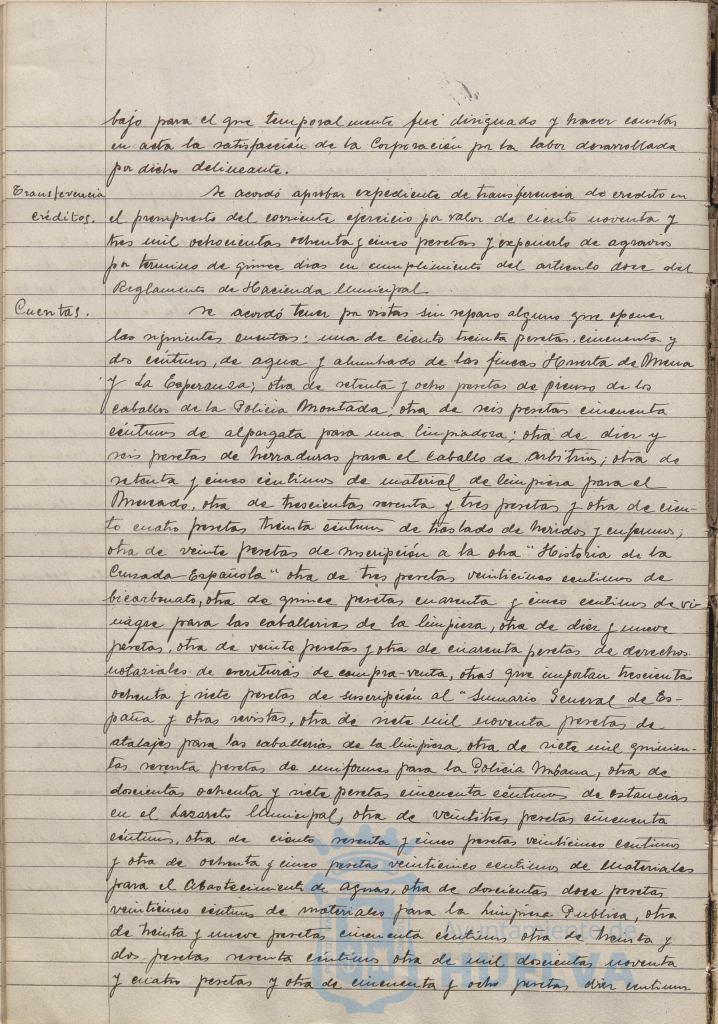 bajo para el que temporalmente fué disignado y hacer constar
en acta la satisfacción de la Corporación por la labor desarrollada
por dicho delineante.
Transferencia Se acordó aprobar expediente de transferencia de credito en
créditos. el presupuesto del corriente ejercicio por valor de ciento noventa y
tres mil ochocientas ochenta y cinco pesetas y exponerlo de agravios
por termino de quince dias en cumplimiento del articulo doce del
Reglamento de Hacienda Municipal.
Cuentas. Se acordó tener por vistas sin reparo alguno que oponer
las siguientes cuentas: una de ciento treinta pesetas cincuenta y
dos céntimos, de agua y alumbrado de las fincas Huerta de Mena
y La Esperanza; otra de setenta y ocho pesetas de pienso de los
caballos de la Policia Montada; otra de seis pesetas cincuenta
céntimos de alpargata para una limpiadora; otra de diez y
seis pesetas de herraduras para el caballo de Arbitrios; otra de
setenta y cinco céntimos de material de limpiesa para el
Mercado, otra de trescientas sesenta y tres pesetas y otra de cien-
to cuatro pesetas treinta céntimos de traslado de heridos y enfermos;
otra de veinte pesetas de inscripción a la obra "Historia de la
Cruzada Española" otra de tres pesetas veinticinco centimos de
bicarbonato, otra de quince pesetas cuarenta y cinco centimos de vi-
nagre para las caballerias de la limpiesa, otra de diez y nueve
pesetas, otra de veinte pesetas y otra de cuarenta pesetas de derechos
notariales de escrituras de compra-venta, otras que importan trescientas
ochenta y siete pesetas de suscripción al "Sumario General de Es-
paña y otras revistas, otra de siete mil noventa pesetas de
atalajes para las caballerias de la limpiesa, otra de siete mil quinien-
tas sesenta pesetas de uniformes para la Policia Urbana, otra de
doscientas ochenta y siete pesetas cincuenta céntimos de estancias
en el Lazareto Municipal, otra de veintitres pesetas cincuenta
céntimos, otra de ciento sesenta y cinco pesetas veinticinco centimos
y otra de ochenta y cinco pesetas veinticinco centimos de materiales
para el Abastecimiento de Aguas, otra de doscientas doce pesetas
veinticinco céntimos de materiales para la Limpiesa Publica, otra
de treinta y nueve pesetas cincuenta céntimos otra de treinta y
dos pesetas sesenta céntimos otra de mil doscientas noventa
y cuatro pesetas y otra de cincuenta y ocho pesetas diez centimos
Ayuntamiento de
HUELVA